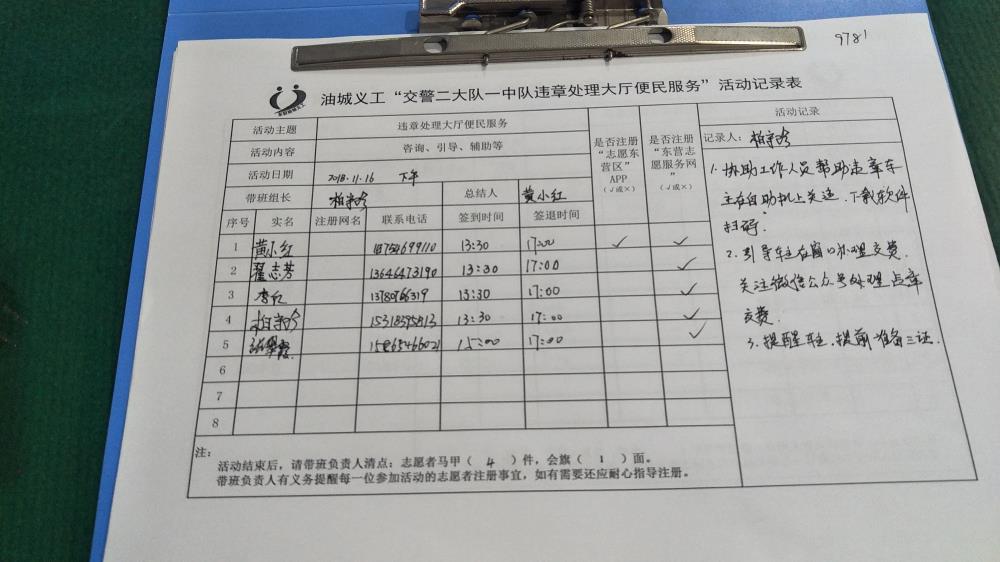 9781
油城义工“交警二大队一中队违章处理大厅便民服务”活动记录表
活动主题 违章处理大厅便民服务
活动内容 咨询、引导、辅助等
活动日期 2018.11.16 下午
带班组长 总结人 黄小红
是否注册“志愿东营区”APP（√或×）
是否注册“东营志愿服务网”（√或×）
序号 实名 注册网名 联系电话 签到时间 签退时间
1 黄小红 18754699110 13:30 17:00 ✓ ✓
2 翟志芳 13646473190 13:30 17:00 ✓
3 李红 13780766319 13:30 17:00 ✓
4 15318595813 13:30 17:00 ✓
5 15865466021 15:00 17:00 ✓
6
7
8
活动记录
记录人：
1. 协助工作人员帮助违章车
主在自助机上关选、下载软件
扫码。
2. 引导车主在窗口办理交费.
关注微信公众号处理违章
交费.
3. 提醒车主.提前准备三证.
注：
活动结束后，请带班负责人清点：志愿者马甲（ 4 ）件，会旗（ 1 ）面。
带班负责人有义务提醒每一位参加活动的志愿者注册事宜，如有需要还应耐心指导注册。